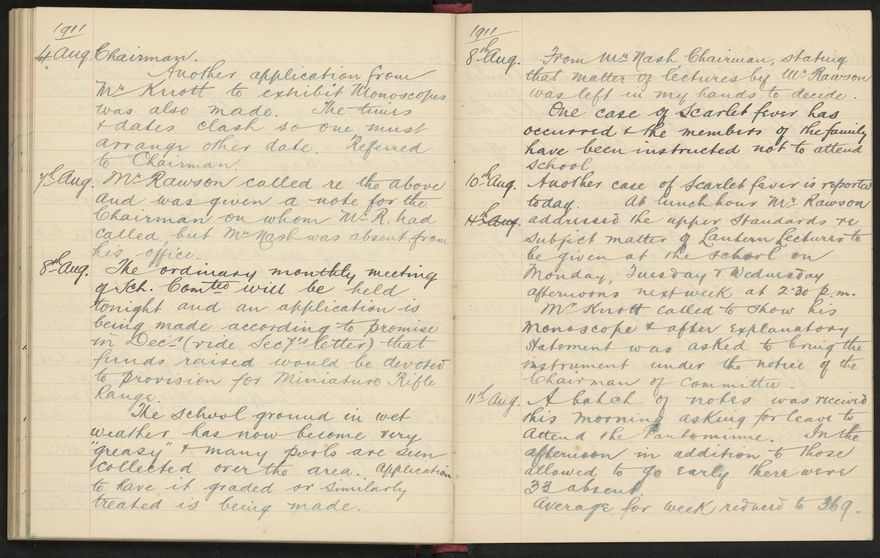 1911
4 Aug. Chairman.
Another application from
Mr Knott to exhibit Monoscopes
was also made. The times
& dates clash so one must
arrange other date. Referred
to Chairman.
7th Aug. Mr Rawson called re the above
and was given a note for the
Chairman on whom Mr R. had
called, but Mr Nash was absent from
his office.
8th Aug. The ordinary monthly meeting
of Sch. Comtee will be held
tonight and an application is
being made according to promise
in Decr (vide Secy's letter) that
funds raised would be devoted
to provision for Miniature Rifle
Range.
The school ground in wet
weather has now become very
"greasy" & many pools are seen
collected over the area. Application
to have it graded or similarly
treated is being made.
1911
8th Aug. From Mr Nash Chairman, stating
that matter of lectures by Mr Rawson
was left in my hands to decide.
One case of Scarlet fever has
occurred & the members of the family
have been instructed not to attend
school.
10th Aug. Another case of Scarlet fever is reported
today. At lunch hour Mr Rawson
11th Aug. addressed the upper Standards re
subject matter of Lantern Lectures to
be given at the school on
Monday, Tuesday & Wednesday
afternoons next week at 2-30 p.m.
Mr Knott called to show his
Monoscope & after explanatory
statement was asked to bring the
instrument under the notice of the
Chairman of Committee.
11th Aug. A batch of notes was received
this morning asking for leave to
attend the Pantomime. In the
afternoon in addition to those
allowed to go early there were
33 absent.
Average for week reduced to 369.